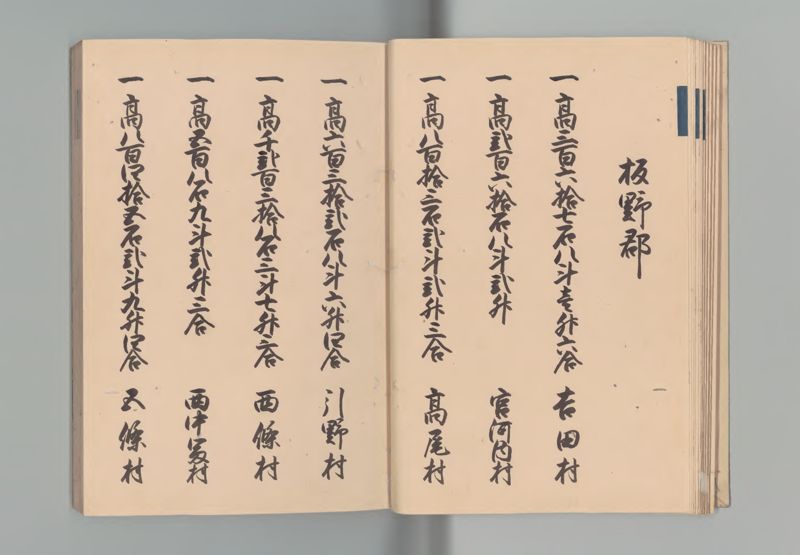 板野郡
一高三百六拾七石八斗壱升六合 吉田村
一高弐百六拾石八斗弐升 宮河内村
一高八百拾三石弐斗弐升三合 高尾村
一高六百三拾弐石八斗六升四合 引野村
一高千弐百三拾八石三斗七升三合 西條村
一高五百八石九斗弐升三合 西中冨村
一高八百四拾五石弐斗九升四合 五條村